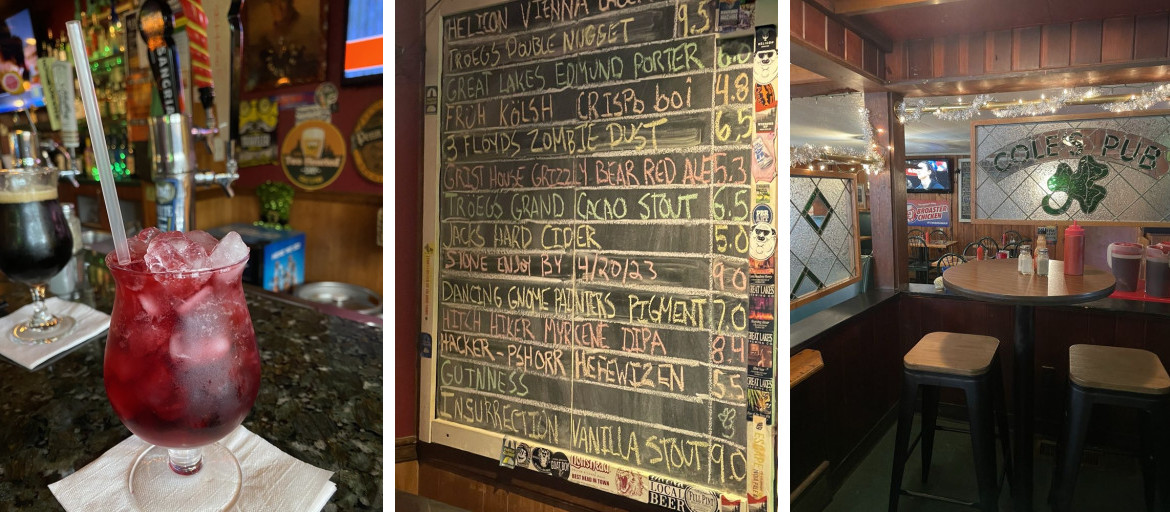 SANGRIA
HELION VIENNA 9.5
TROEGS DOUBLE NUGGET
GREAT LAKES EDMUND PORTER 6.0
FRÜH KÖLSH CRISPO boi 4.8
3 FLOYDS ZOMBIE DUST 6.5
GRIST HOUSE GRIZZLY BEAR RED ALE 5.3
TROEGS GRAND CACAO STOUT 6.5
JACKS HARD CIDER 5.0
STONE ENJOY BY 4/20/23 9.0
DANCING GNOME PAINTERS PIGMENT 7.0
HITCH HIKER MYRCENE DIPA 8.4
HACKER-PSHORR HEFEWIZEN 5.5
GUINNESS
INSURRECTION VANILLA STOUT 9.0
GREAT LAKES
GREAT LAKES
GREAT LAKES
LOCAL
BEER
FULL PINT
COLE'S PUB
BROASTER
CHICKEN